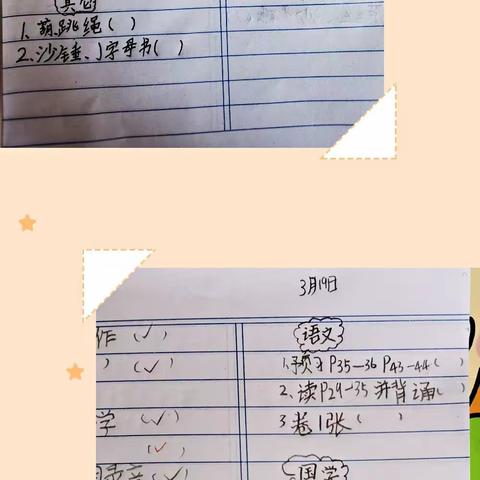 其它
1、萌跳绳( )
2、沙锤、J字母书( )
3月19日
作(✓)
)(✓)
学(✓)
(✓)
(✓)
语文
1.预习P35—36 P43-44( )
2、读P29-35 并背诵( )
3 卷1张( )
国学